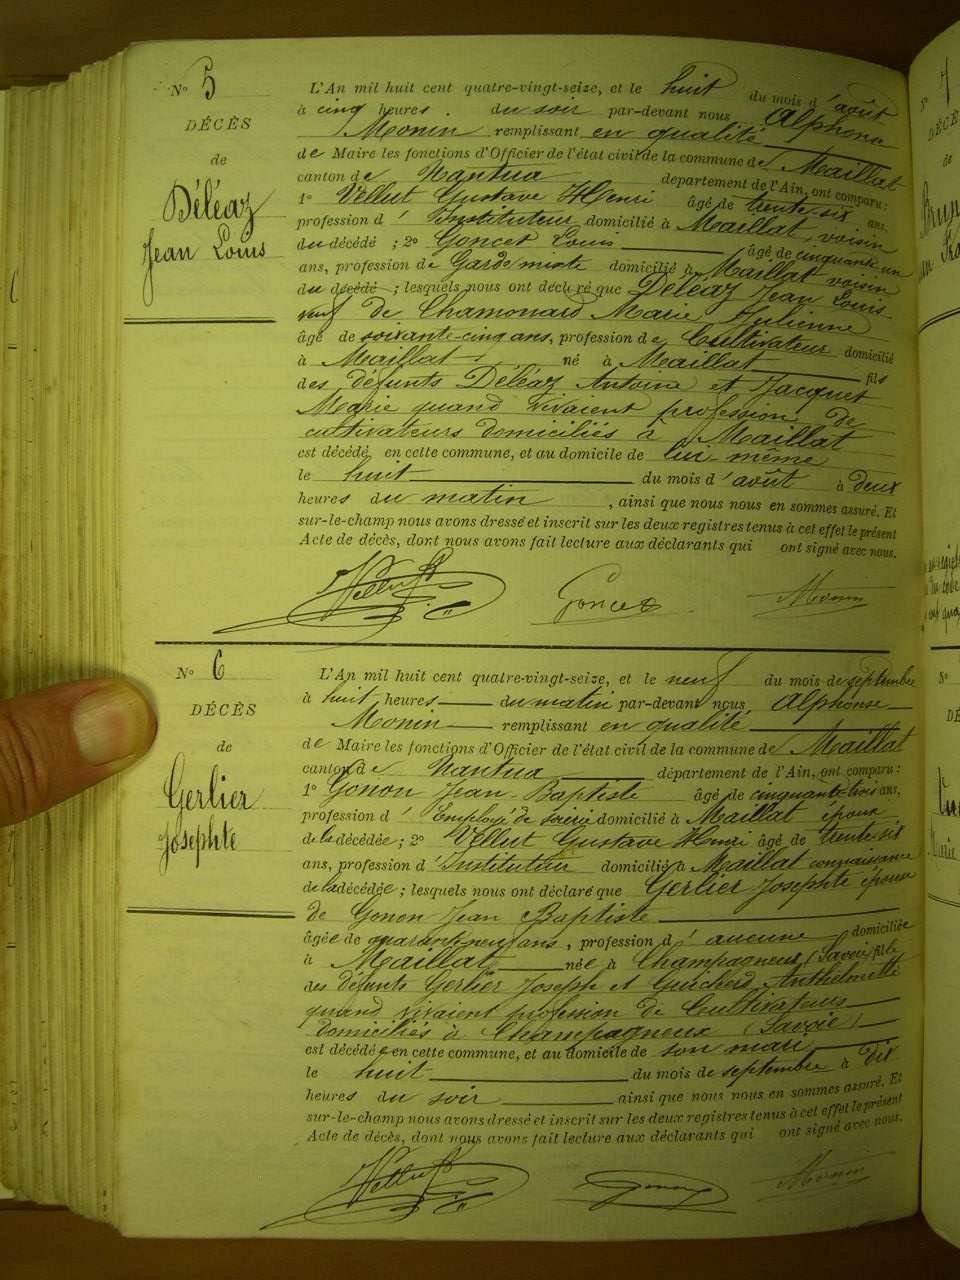 N° 5
DÉCÈS
de
Déléaz
Jean Louis
L'An mil huit cent quatre-vingt-seize, et le huit du mois d'août
à cinq heures du soir par-devant nous Alphonse
Monin remplissant en qualité
de Maire les fonctions d'Officier de l'état civil de la commune de Maillat
canton de Nantua département de l'Ain, ont comparu :
1° Vellut Gustave Henri âgé de trente-six ans,
profession d'Instituteur domicilié à Maillat, voisin
du décédé ; 2° Goncet Louis âgé de cinquante un
ans, profession de Garde mixte domicilié à Maillat voisin
du décédé ; lesquels nous ont déclaré que Déléaz Jean Louis
veuf de Chamonard Marie Julienne
âgé de soixante-cinq ans, profession de Cultivateur domicilié
à Maillat né à Maillat fils
des défunts Déléaz Antoine et Jacquet
Marie quand vivaient profession de
cultivateurs domiciliés à Maillat
est décédé en cette commune, et au domicile de lui même
le huit du mois d'août à deux
heures du matin, ainsi que nous nous en sommes assuré. Et
sur-le-champ nous avons dressé et inscrit sur les deux registres tenus à cet effet le présent
Acte de décès, dont nous avons fait lecture aux déclarants qui ont signé avec nous.
Vellut Goncet Monin
N° 6
DÉCÈS
de
Gerlier
Josephte
L'An mil huit cent quatre-vingt-seize, et le neuf du mois de septembre
à huit heures du matin par-devant nous, Alphonse
Monin remplissant en qualité
de Maire les fonctions d'Officier de l'état civil de la commune de Maillat
canton de Nantua département de l'Ain, ont comparu :
1° Gonon Jean-Baptiste âgé de cinquante-trois ans,
profession d'Employé de soierie domicilié à Maillat époux
de la décédée ; 2° Vellut Gustave Henri âgé de trente six
ans, profession d'Instituteur domicilié à Maillat connaissance
de la décédée ; lesquels nous ont déclaré que Gerlier Josephte épouse
de Gonon Jean Baptiste
âgée de quarante-neuf ans, profession d'aucune domiciliée
à Maillat née à Champagneux (Savoie) fille
des défunts Gerlier Joseph et Guicherd Anthelmette
quand vivaient profession de Cultivateurs
domiciliés à Champagneux (Savoie)
est décédée en cette commune, et au domicile de son mari
le huit du mois de septembre à dix
heures du soir ainsi que nous nous en sommes assuré. Et
sur-le-champ nous avons dressé et inscrit sur les deux registres tenus à cet effet le présent
Acte de décès, dont nous avons fait lecture aux déclarants qui ont signé avec nous.
Vellut Gonon Monin